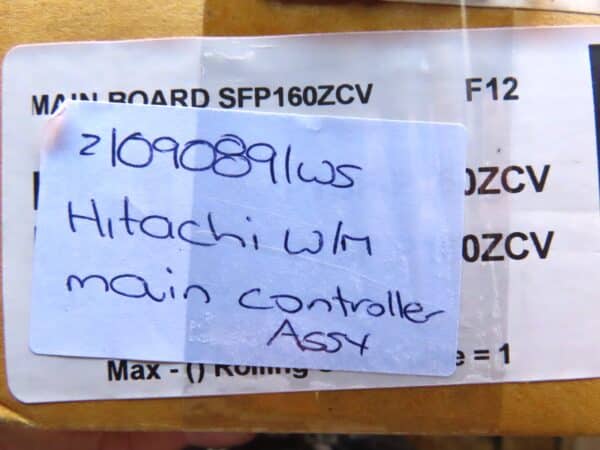 MAIN BOARD SFP160ZCV F12
21090891WS
0ZCV
Hitachi W/M
0ZCV
main controller
Assy
Max - () Rolling e = 1